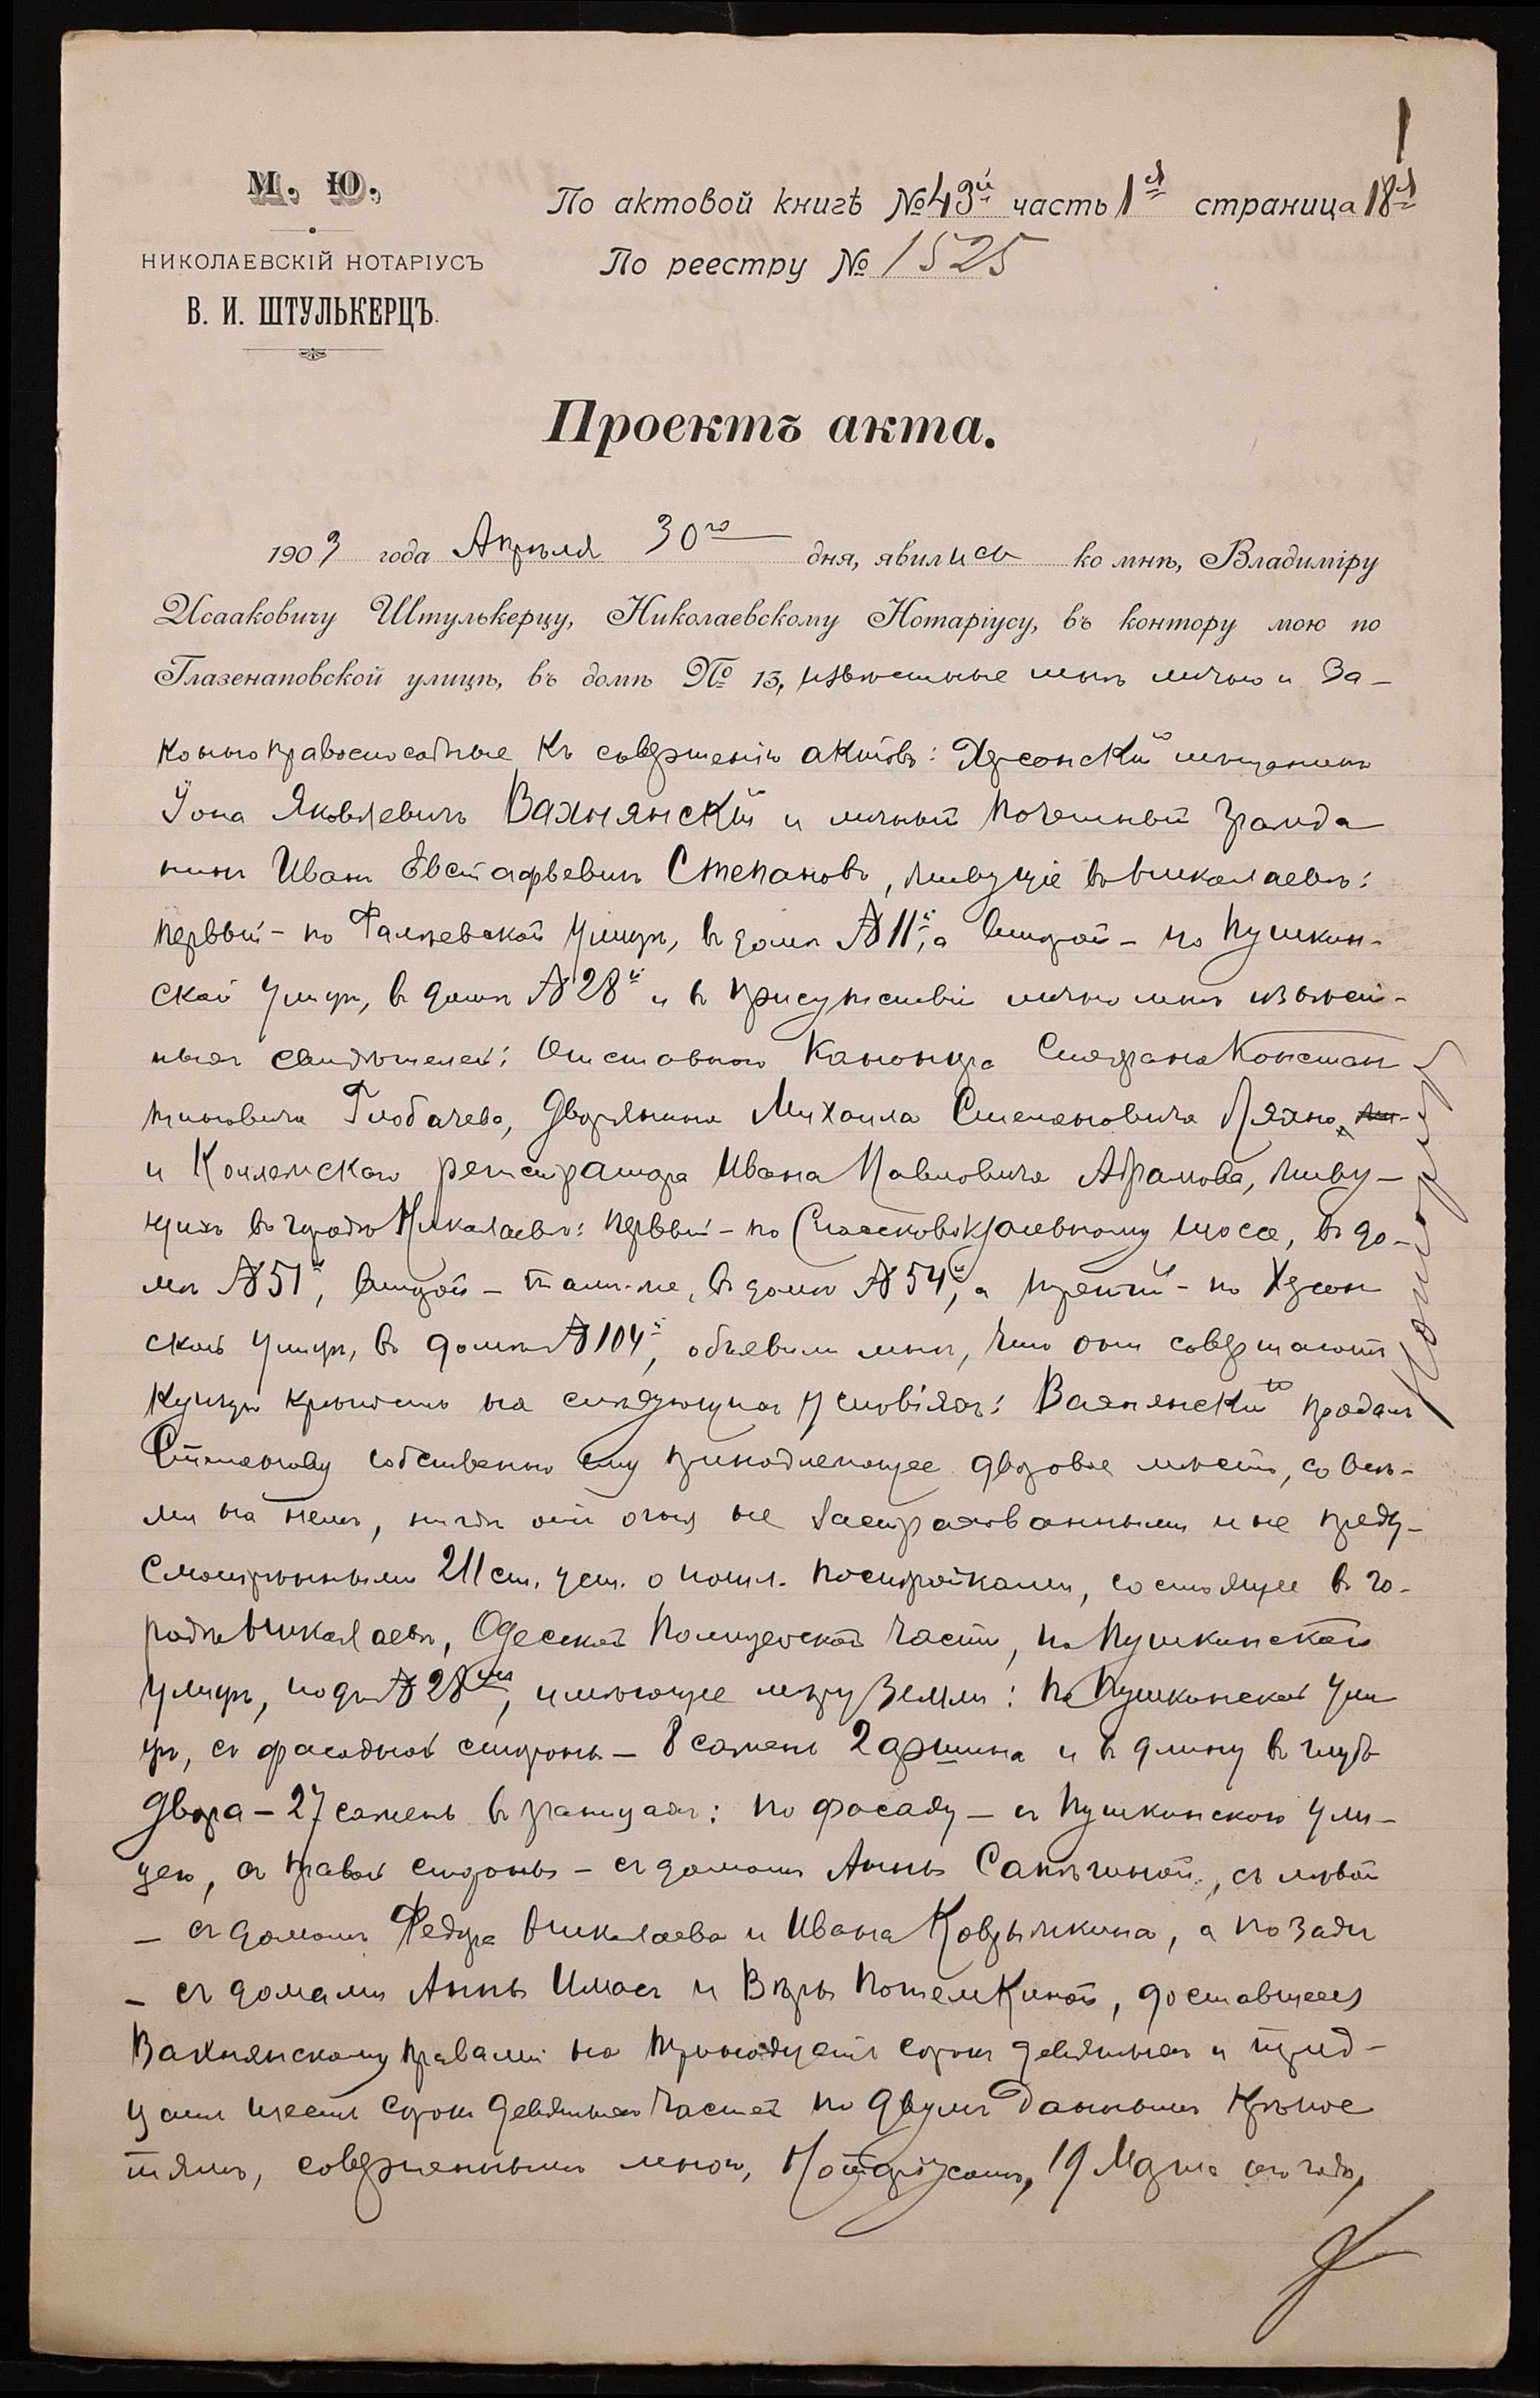 1
М. Ю.
НИКОЛАЕВСКІЙ НОТАРІУСЪ
В. И. ШТУЛЬКЕРЦЪ.
По актовой книгѣ № 43й часть 1я страница 18я
По реестру № 1525
Проектъ акта.
1903 года Апрѣля 30го дня, явились ко мнѣ, Владиміру
Исааковичу Штулькерцу, Николаевскому Нотаріусу, въ контору мою по
Глазенаповской улицѣ, въ домѣ № 13, извѣстные мнѣ лично и за-
конно правоспособные къ совершенію актовъ: Херсонскій мѣщанинъ
Іона Яковлевичъ Вахнянскій и личный почетный гражда
нинъ Иванъ Евстафьевичъ Степановъ, живущіе въ Николаевѣ:
первый - по Фалѣевской улицѣ, въ домѣ № 11й, а второй - по Пушкин-
ской улицѣ, въ домѣ № 28й и въ присутствіи лично мнѣ извѣст-
ныхъ свидѣтелей: отставного канонира Стефана Констан
тиновича Глобачева, дворянина Михаила Степановича Ляхно
и Коллежскаго регистратора Ивана Павловича Абрамова, живу-
щихъ въ городѣ Николаевѣ: первый - по шоссе, въ до-
мѣ № 51й, второй - тамъ-же, въ домѣ № 54й, а третій - по Херсон
ской улицѣ, въ домѣ № 104й, объявили мнѣ, что они совершаютъ
купчую крѣпость на слѣдующихъ условіяхъ: Вахнянскій продалъ
Степанову собственно ему принадлежащее дворовое мѣсто, со всѣ-
ми на немъ, нигдѣ отъ огня не застрахованными и не преду-
смотрѣнными 211 ст. уст. о пошл. постройками, состоящее въ го-
родѣ Николаевѣ, Одесской Полицейской части, по Пушкинской
улицѣ, подъ № 28мъ, имѣющее мѣру земли: по Пушкинской ули
цѣ, съ фасадной стороны - 8 сажень 2 аршина и въ длину въ глубь
двора - 27 сажень въ границахъ: по фасаду - съ Пушкинскою ули-
цею, съ правой стороны - съ домомъ Анны, съ лѣвой
- съ домомъ Федора Николаева и Ивана, а позади
- съ домами Анны Имасъ и Вѣры Потемкиной, доставшееся
Вахнянскому правами на тринадцать сорокъ девятыхъ и трид-
цать шесть сорокъ девятыхъ частей по двумъ даннымъ крѣпос
тямъ, совершеннымъ мною, Нотаріусомъ, 19 Марта сего года,
Нотаріусъ